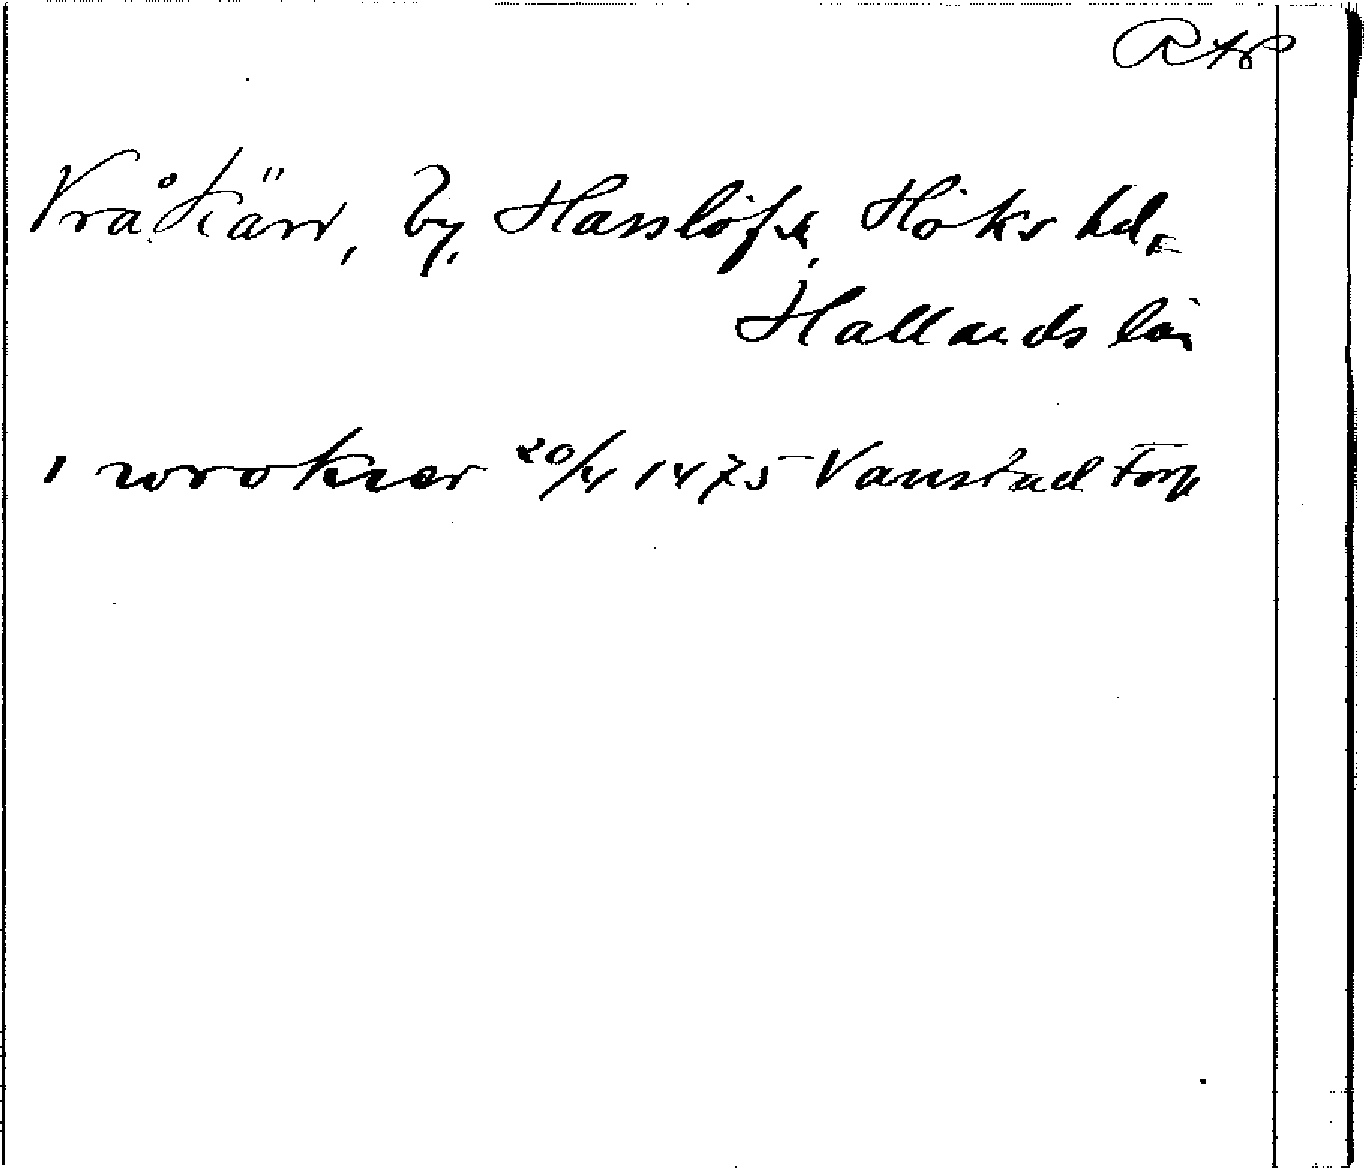 Vråkärr, by, Hasslöfs, Höks hd,
Hallands län
i wrokær 20/4 1475 Vanstad Torp